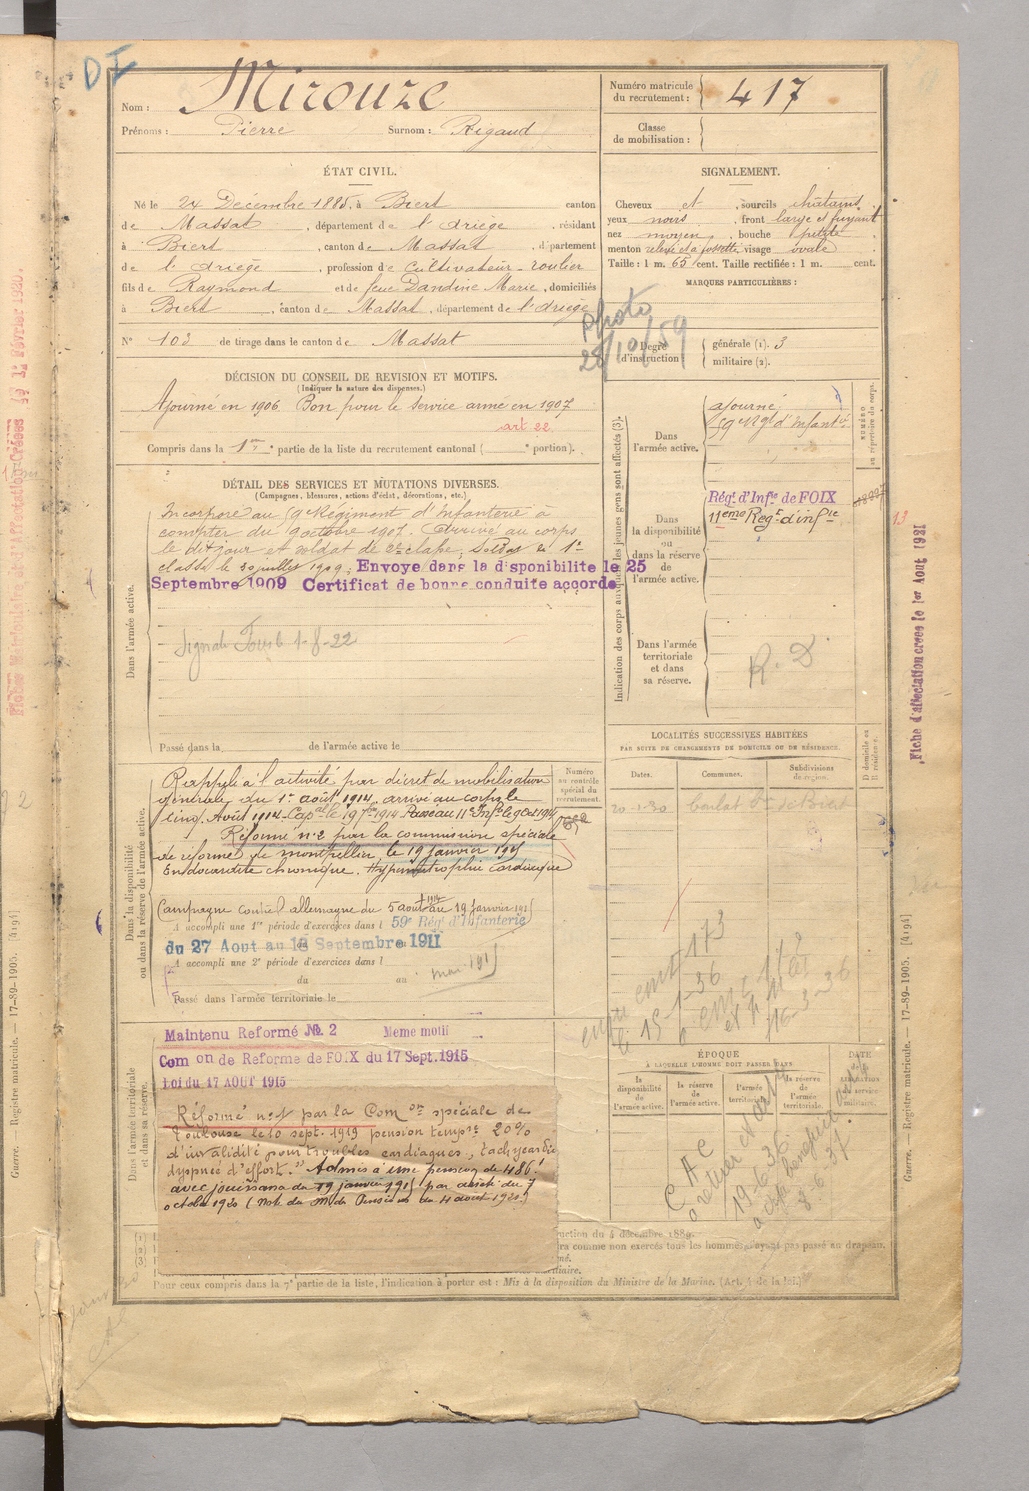 DI
Nom : Mirouze
Prénoms : Pierre Surnom : Rigaud
Numéro matricule du recrutement : 417
Classe de mobilisation :
ÉTAT CIVIL.
Né le 24 Décembre 1885, à Biert canton
de Massat, département de l'Ariège, résidant
à Biert, canton de Massat, département
de l'Ariège, profession de Cultivateur - roulier
fils de Raymond et de feue Dandine Marie, domiciliés
à Biert, canton de Massat, département de l'Ariège
N° 103 de tirage dans le canton de Massat
SIGNALEMENT.
Cheveux et, sourcils châtains
yeux noirs, front large et fuyant
nez moyen, bouche petite
menton relevé et à fossette visage ovale
Taille : 1 m. 65 cent. Taille rectifiée : 1 m. cent.
MARQUES PARTICULIÈRES :
photo
28/10/59
Degré d'instruction
générale (1). 3
militaire (2).
DÉCISION DU CONSEIL DE REVISION ET MOTIFS.
(Indiquer la nature des dispenses.)
Ajourné en 1906 Bon pour le service armé en 1907
art 22
Compris dans la 1re partie de la liste du recrutement cantonal ( e portion).
DÉTAIL DES SERVICES ET MUTATIONS DIVERSES.
(Campagnes, blessures, actions d'éclat, décorations, etc.)
Dans l'armée active.
Incorporé au 59e Régiment d'Infanterie à
compter du 9 octobre 1907. Arrivé au corps
le dit jour et soldat de 2e classe, Soldat de 1e
classe le 20 juillet 1909. Envoye dans la disponibilite le 25
Septembre 1909 Certificat de bonne conduite accorde
1-8-22
Passé dans la de l'armée active le
Indication des corps auxquels les jeunes gens sont affectés (3).
Dans l'armée active.
ajourné
59e Rgt d'Infantie
NUMÉRO au répertoire du corps.
Dans la disponibilité ou dans la réserve de l'armée active.
Régt d'Infie de FOIX
11eme Regt d'infie
13
Dans l'armée territoriale et dans sa réserve.
R. D
Fiche d'affectation créée le 1er Aout 1921
LOCALITÉS SUCCESSIVES HABITÉES
PAR SUITE DE CHANGEMENTS DE DOMICILE OU DE RÉSIDENCE.
Dates. Communes. Subdivisions de région. D domicile ou R résidence.
20-1-30
Dans la disponibilité ou dans la réserve de l'armée active.
Numéro au contrôle spécial du recrutement.
Rappelé à l'activité par décret de mobilisation
générale du 1er août 1914, arrivé au corps le
cinq Août 1914. Capal le 19 7bre 1914 Passé au 11e Infie le 9 Oct 1914
Réformé n°2 par la commission spéciale
de réforme de Montpellier, le 19 janvier 1915
Endocardite chronique. Hypertrophie cardiaque
Campagne contre l'allemagne du 5 août 1914 au 19 janvier 1915
A accompli une 1re période d'exercices dans l 59e Rég. d'Infanterie
du 27 Aout au 18 Septembre 1911
A accompli une 2e période d'exercices dans l
du au
Passé dans l'armée territoriale le
Dans l'armée territoriale et dans sa réserve.
Maintenu Reformé No. 2 Meme motif
Com on de Reforme de FOIX du 17 Sept. 1915
Loi du 17 AOUT 1915
Réformé n°1 par la Com on spéciale de
Toulouse le 10 sept. 1919 pension tempre 20%
d'invalidité pour troubles cardiaques, tachycardie
dyspnée d'effort." Admis à une pension de 486 f
avec jouissance du 19 janvier 1915 par arrêté du 7
octobre 1920 (Note du M. des Pensions du 4 août 1920)
173
15-1-36
16-3-36
ÉPOQUE
À LAQUELLE L'HOMME DOIT PASSER DANS
la disponibilité de l'armée active.
la réserve de l'armée active.
l'armée territoriale.
la réserve de l'armée territoriale.
DATE de la LIBÉRATION du service militaire.
C A C
19-6-36
8-6-37
(1)
(2)
(3)
ruction du 4 décembre 1889.
ra comme non exercés tous les hommes ayant pas passé au drapeau.
Pour ceux compris dans la 7e partie de la liste, l'indication à porter est : Mis à la disposition du Ministre de la Marine. (Art. 4 de la loi.)
Guerre. — Registre matricule. — 17-89-1905. [4194]
Guerre. — Registre matricule. — 17-89-1905. [4194]